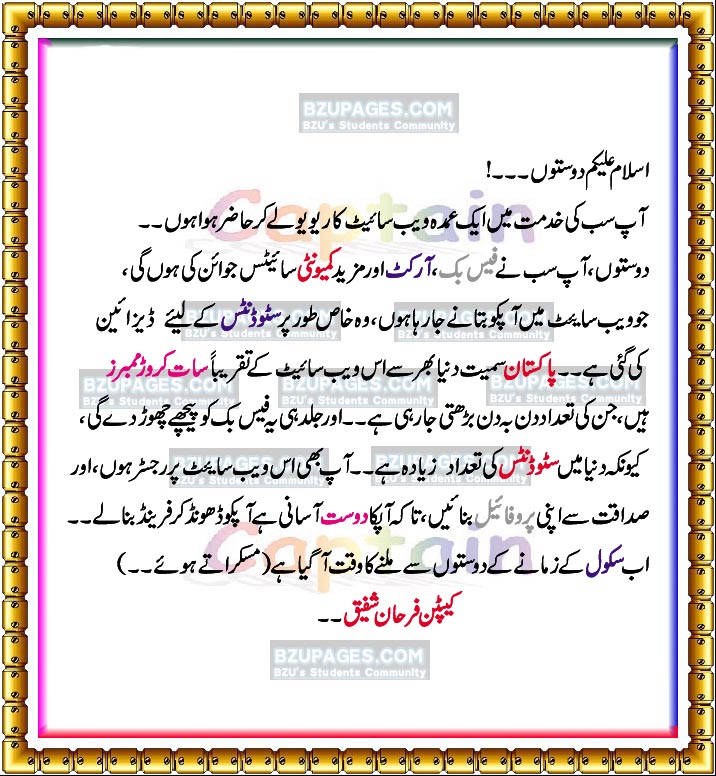 BZUPAGES.COM
BZU's Students Community
اسلام علیکم دوستوں ۔۔۔!
Captain
آپ سب کی خدمت میں ایک عمدہ ویب سائیٹ کا ریویو لے کر حاضر ہوا ہوں ۔۔
دوستوں، آپ سب نے فیس بک، آرکٹ اور مزید کمیونٹی سائیٹس جوائن کی ہوں گی،
جو ویب سایٹ میں آپکو بتانے جا رہا ہوں، وہ خاص طور پر سٹوڈنٹس کے لیئے ڈیزائین
کی گئی ہے۔۔ پاکستان سمیت دنیا بھر سے اس ویب سائیٹ کے تقریباً سات کروڑ ممبرز
BZUPAGES.COM BZUPAGES.COM BZUPAGES.COM BZUPAGES.COM
BZU's Students Community BZU's Students Community BZU's Students Community BZU's Students Community
ہیں، جن کی تعداد دن بہ دن بڑھتی جا رہی ہے۔۔ اور جلد ہی یہ فیس بک کو پیچھے چھوڑ دے گی،
کیونکہ دنیا میں سٹوڈنٹس کی تعداد زیادہ ہے۔۔ آپ بھی اس ویب سایٹ پر رجسٹر ہوں، اور
BZUPAGES.COM BZUPAGES.COM
BZU's Students Community BZU's Students Community
صداقت سے اپنی پروفائیل بنائیں، تاکہ آپکا دوست آسانی ہے آپکو ڈھونڈ کر فرینڈ بنا لے۔۔
Captain
اب سکول کے زمانے کے دوستوں سے ملنے کا وقت آ گیا ہے (مسکراتے ہوئے ۔۔)
کیپٹن فرحان شفیق ۔۔
BZUPAGES.COM
BZU's Students Community